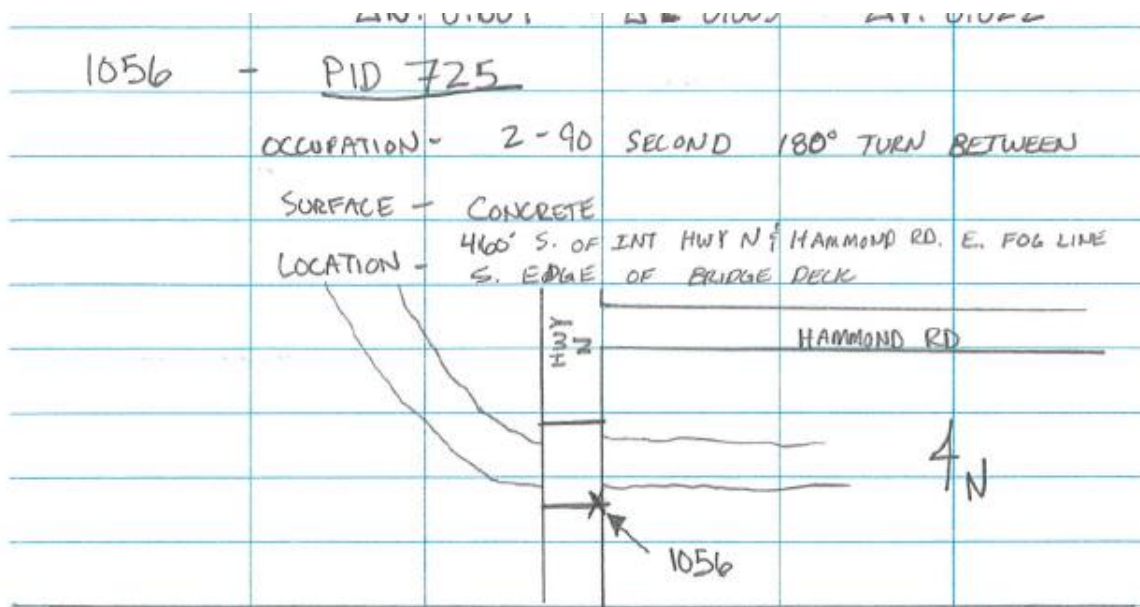 1056 - PID 725
OCCUPATION - 2-90 SECOND 180° TURN BETWEEN
SURFACE - CONCRETE
460' S. OF INT HWY N & HAMMOND RD. E. FOG LINE
LOCATION - S. EDGE OF BRIDGE DECK
HWY N
HAMMOND RD
N
1056